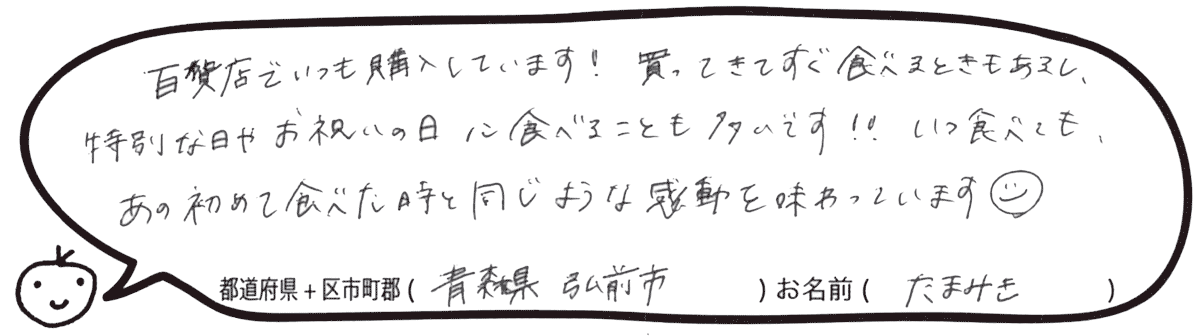 百貨店でいつも購入しています! 買ってきてすぐ食べるときもあるし、
特別な日やお祝いの日に食べることも多いです!! いつ食べても、
あの初めて食べた時と同じような感動を味わっています
都道府県+区市町郡( 青森県 弘前市 )お名前( たまみき )